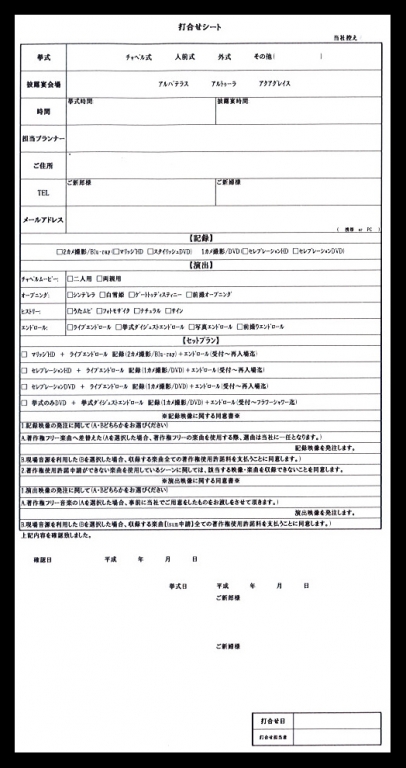 打合せシート
当社控え
挙式 チャペル式 人前式 外式 その他( )
披露宴会場 アルバテラス アルトゥーラ アクアグレイス
時間 挙式時間 披露宴時間
担当プランナー
ご住所
TEL ご新郎様 ご新婦様
メールアドレス
( 携帯 or PC )
【記録】
□2カメ撮影/Blu-ray(□マリッジHD □スタイリッシュDVD) 1カメ撮影/DVD(□セレブレーションHD □セレブレーションDVD)
【演出】
チャペルムービー: □二人用 □両親用
オープニング: □シンデレラ □白雪姫 □ゲートトゥディスティニー □前撮オープニング
ヒストリー: □うたムビ □フォトモザイク □ナチュラル □サイン
エンドロール: □ライブエンドロール □挙式ダイジェストエンドロール □写真エンドロール □前撮りエンドロール
【セットプラン】
□ マリッジHD + ライブエンドロール 記録(2カメ撮影/Blu-ray)+エンドロール(受付～再入場迄)
□ セレブレーションHD + ライブエンドロール 記録(1カメ撮影/DVD)+エンドロール(受付～再入場迄)
□ セレブレーションDVD + ライブエンドロール 記録(1カメ撮影/DVD)+エンドロール(受付～再入場迄)
□ 挙式のみDVD + 挙式ダイジェストエンドロール 記録(1カメ撮影/DVD)+エンドロール(受付～フラワーシャワー迄)
※記録映像に関する同意書※
1.記録映像の発注に関して(A・Bどちらかをお選びください)
A.著作権フリー楽曲へ差替えた(Aを選択した場合、著作権フリーの楽曲を使用する際、選曲は当社に一任となります。)
記録映像を発注します。
B.現場音源を利用した(Bを選択した場合、収録する楽曲全ての著作権使用許諾料を支払うことに同意します。)
2.著作権使用許諾申請ができない楽曲を使用しているシーンに関しては、該当する映像・楽曲を収録できないことを同意します。
※演出映像に関する同意書※
1.演出映像の発注に関して(A・Bどちらかをお選びください)
A.著作権フリー音楽の(Aを選択した場合、事前に当社でご用意をしたものをお渡しをさせて頂きます。)
演出映像を発注します。
B.現場音源を利用した(Bを選択した場合、収録する楽曲【isum申請】全ての著作権使用許諾料を支払うことに同意します。)
上記内容を確認致しました。
確認日 平成 年 月 日
挙式日 平成 年 月 日
ご新郎様
ご新婦様
打合せ日
打合せ担当者